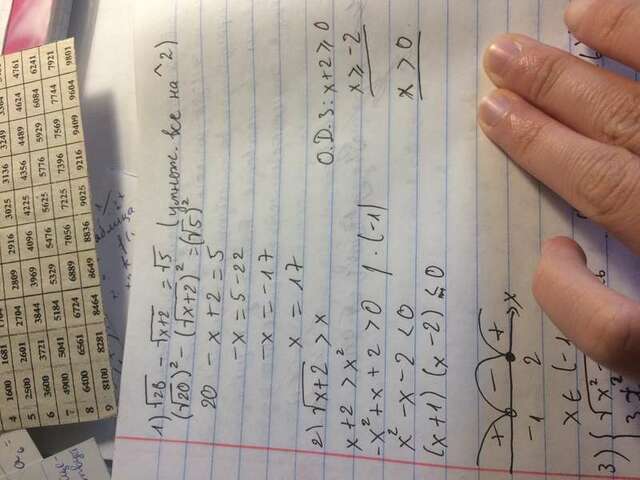 4 1600 1681
5 2500 2601 2704 2809 2916 3025 3136 3249
6 3600 3721 3844 3969 4096 4225 4356 4489 4624 4761
7 4900 5041 5184 5329 5476 5625 5776 5929 6084 6241
8 6400 6561 6724 6889 7056 7225 7396 7569 7744 7921
9 8100 8281 8464 8649 8836 9025 9216 9409 9604 9801
1) √20 - √x+2 = √5 (умнож. все на ^2)
(√20)² - (√x+2)² = (√5)²
20 - x + 2 = 5
-x = 5 - 22
-x = -17
x = 17
2) √x+2 > x О.Д.З: x+2 ≥ 0
x + 2 > x² x ≥ -2
-x² + x + 2 > 0 / · (-1)
x² - x - 2 < 0 x > 0
(x+1) (x-2) ≤ 0
+ - + x
-1 2
x ∈ (-1
3) { √x²